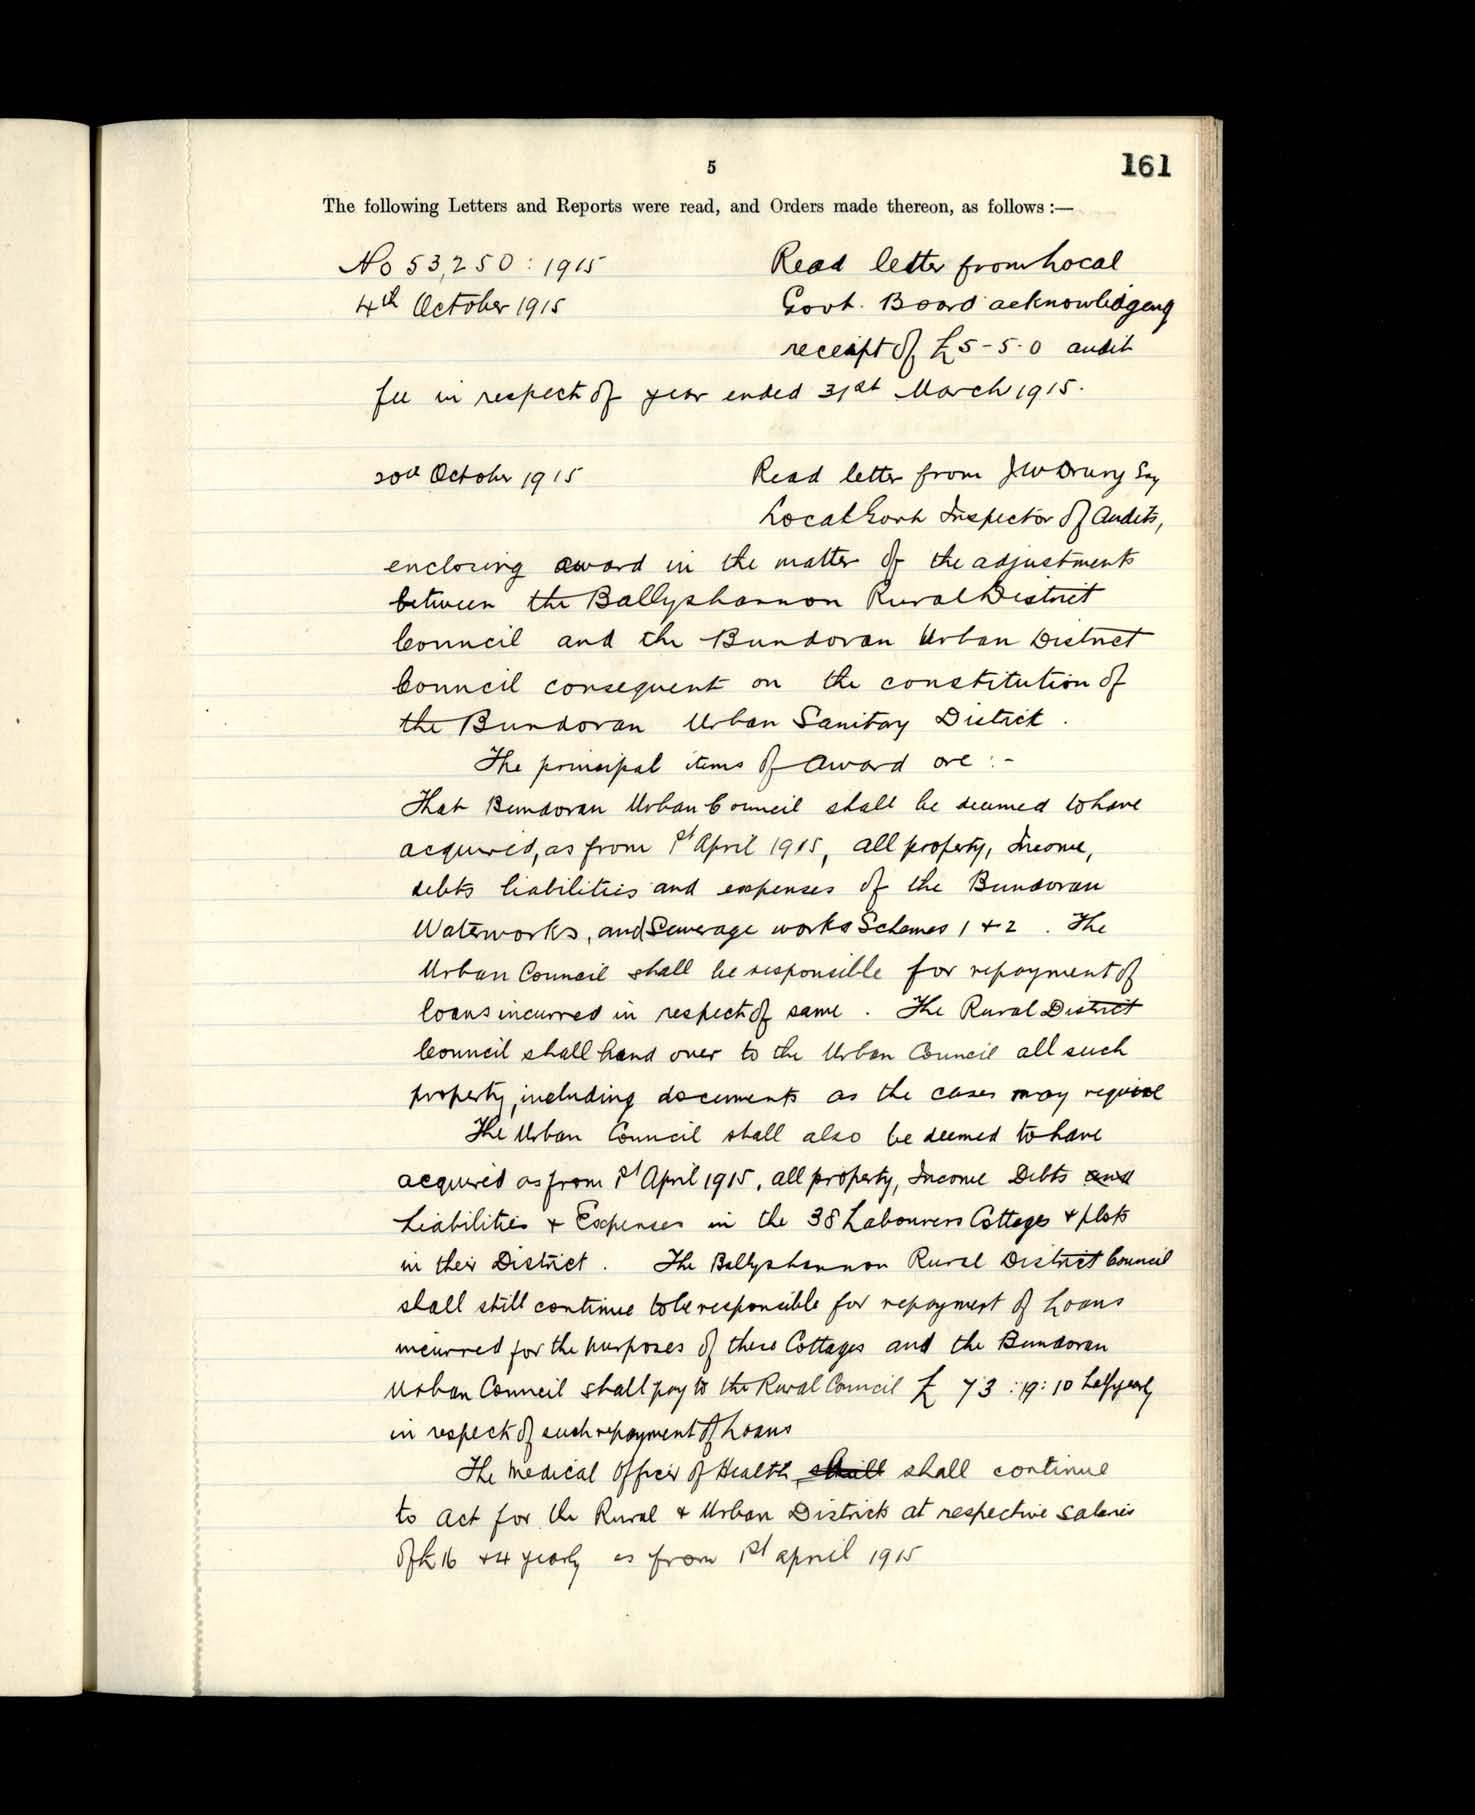 5
161
The following Letters and Reports were read, and Orders made thereon, as follows :—
No 53,250 : 1915
Read letter from Local
4th October 1915
Govt. Board acknowledging
receipt of £5-5-0 audit
fee in respect of year ended 31st March 1915.
20th October 1915
Read letter from J W Drury Esq
Local Govt Inspector of Audits,
enclosing award in the matter of the adjustments
between the Ballyshannon Rural District
Council and the Bundoran Urban District
Council consequent on the constitution of
the Bundoran Urban Sanitary District.
The principal items of Award are :-
That Bundoran Urban Council shall be deemed to have
acquired, as from 1st April 1915, all property, Income,
debts liabilities and expenses of the Bundoran
Waterworks, and Sewerage works Schemes 1 + 2. The
Urban Council shall be responsible for repayment of
loans incurred in respect of same. The Rural District
Council shall hand over to the Urban Council all such
property, including documents as the cases may require
The Urban Council shall also be deemed to have
acquired as from 1st April 1915, all property, Income Debts and
Liabilities + Expenses in the 38 Labourers Cottages + plots
in their District. The Ballyshannon Rural District Council
shall still continue to be responsible for repayment of Loans
incurred for the purposes of these Cottages and the Bundoran
Urban Council shall pay to the Rural Council £ 73 : 19 : 10 half yearly
in respect of such repayment of Loans
The Medical Officer of Health, shall shall continue
to act for the Rural + Urban Districts at respective salaries
of £16 + 4 yearly as from 1st april 1915